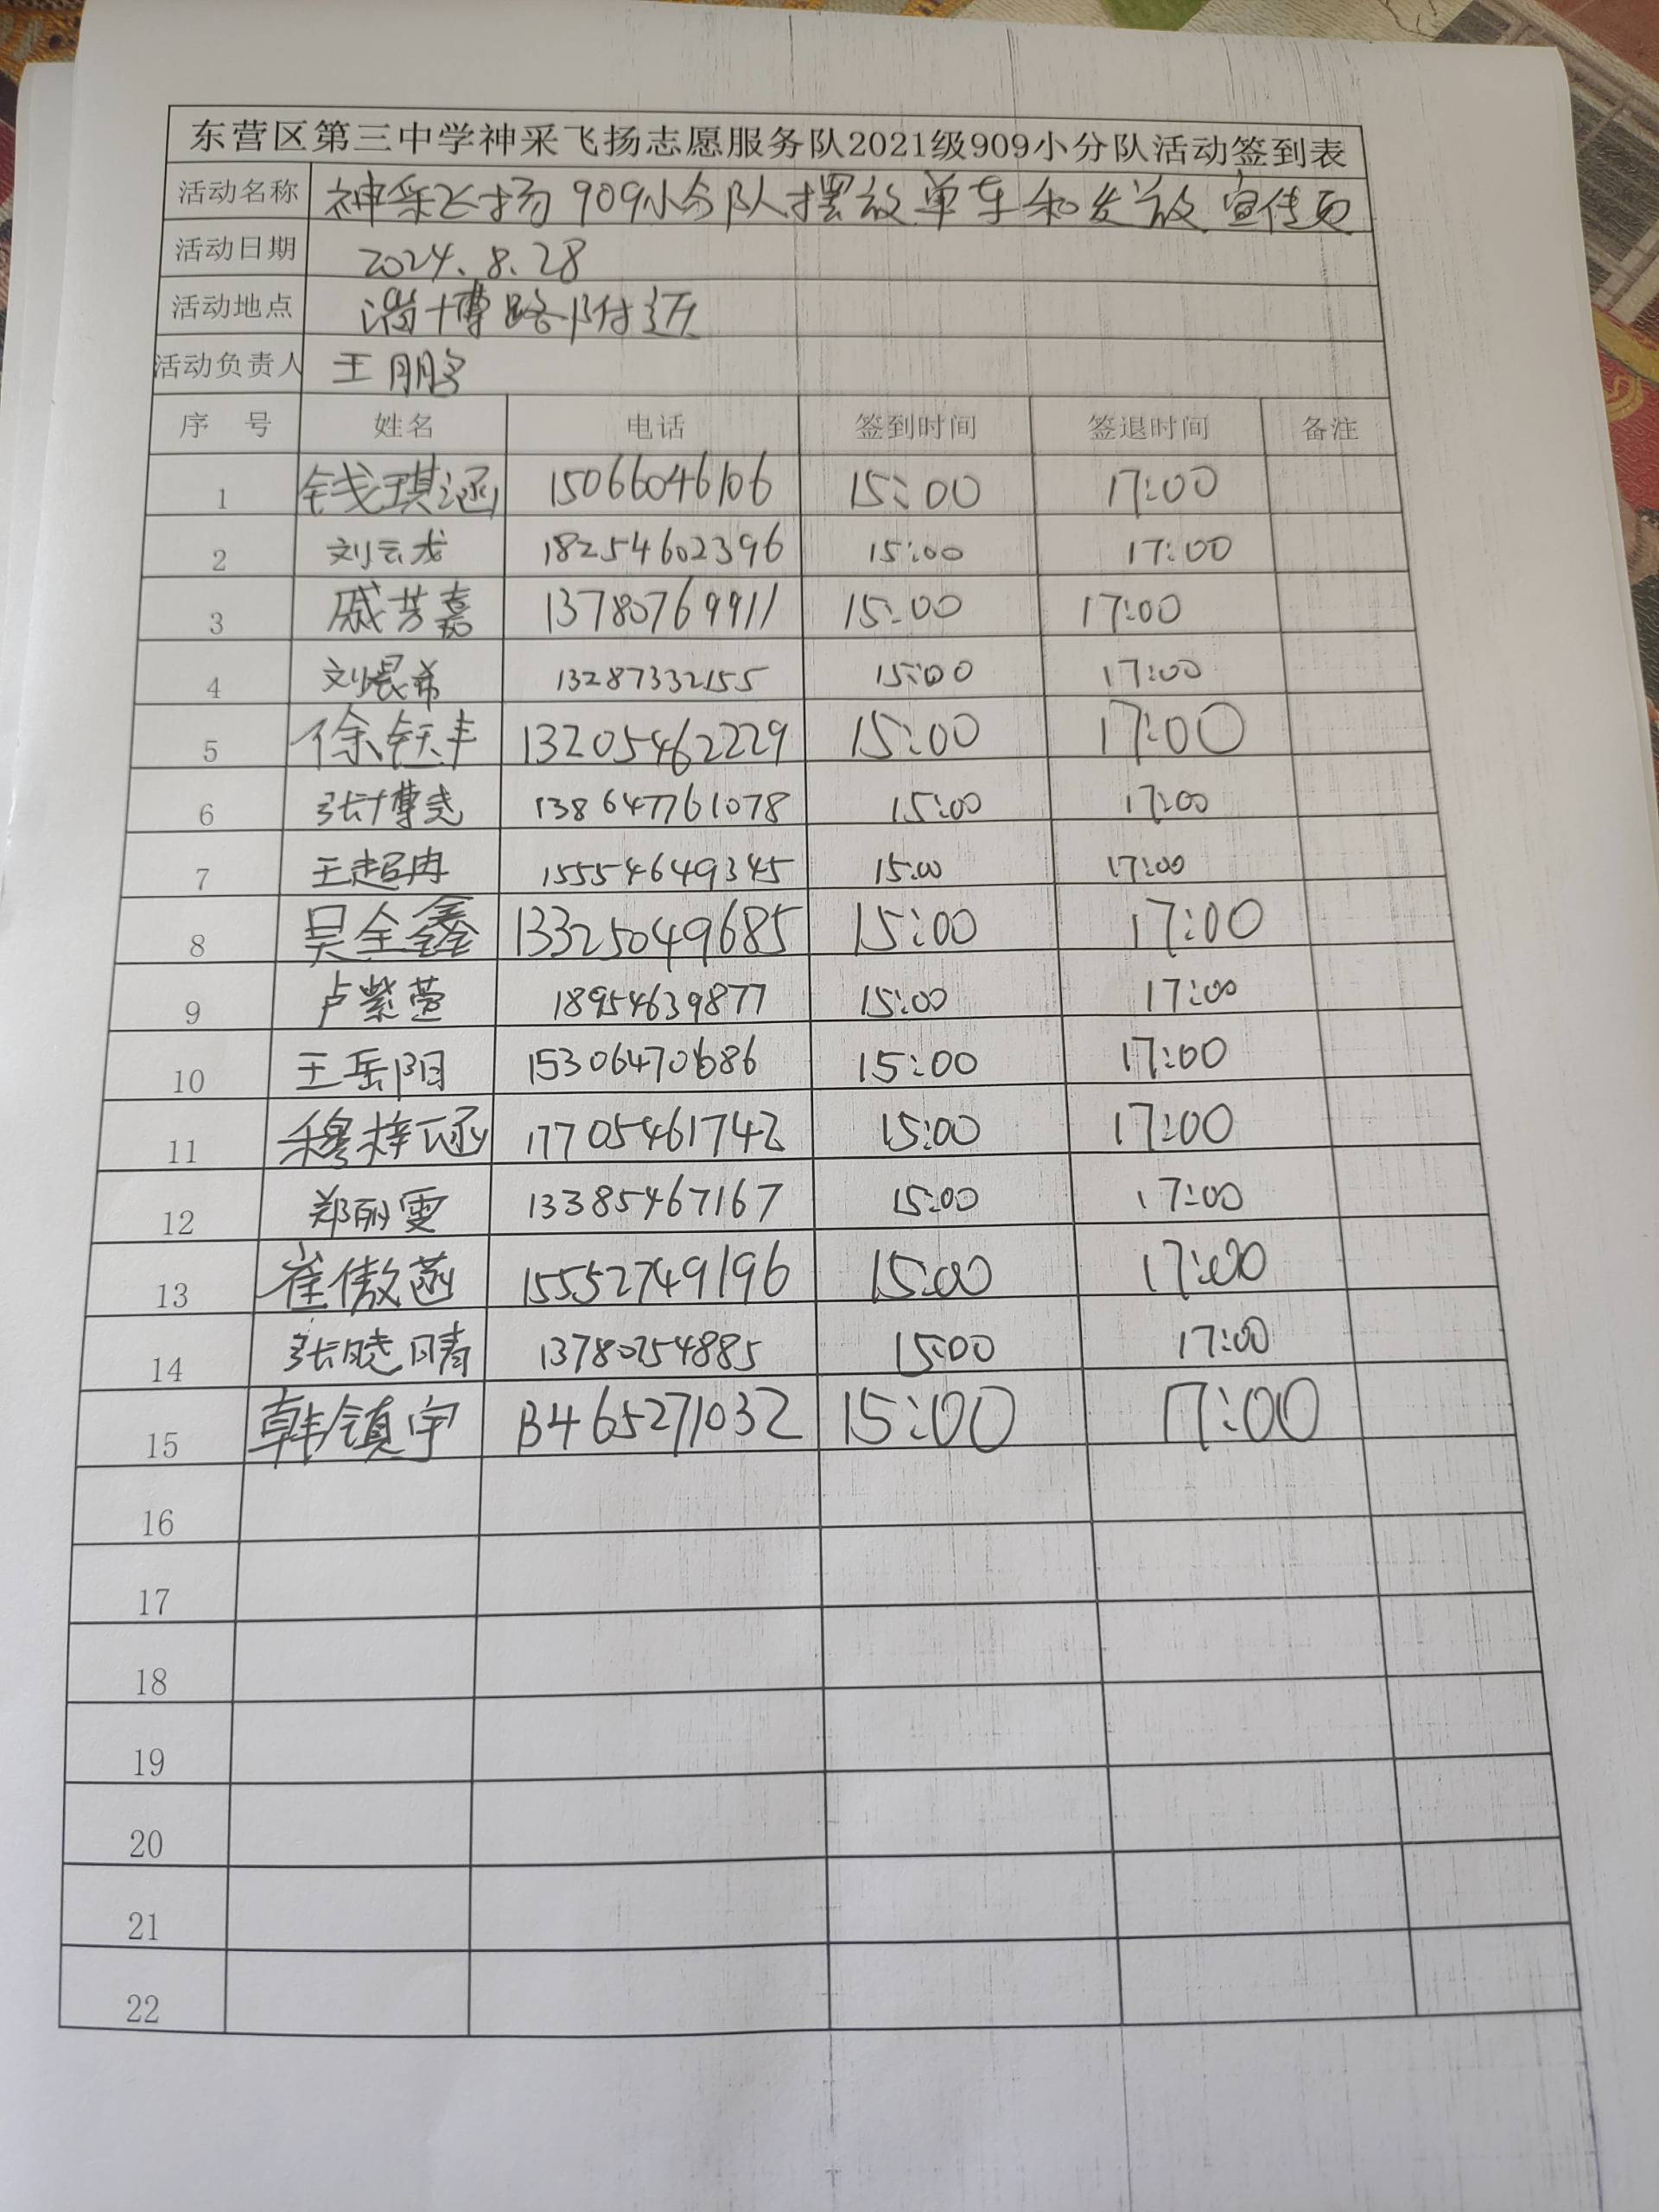 东营区第三中学神采飞扬志愿服务队2021级909小分队活动签到表
活动名称 神采飞扬909小分队摆放单车和发放宣传页
活动日期 2024.8.28
活动地点 淄博路附近
活动负责人 王鹏
序 号 姓名 电话 签到时间 签退时间 备注
1 钱琪涵 15066046106 15:00 17:00
2 刘云龙 18254602396 15:00 17:00
3 戚芳嘉 13780769911 15:00 17:00
4 刘晨希 13287332155 15:00 17:00
5 徐钰丰 13205462229 15:00 17:00
6 张博尧 138647761078 15:00 17:00
7 王超冉 15554649345 15:00 17:00
8 吴全鑫 13325049685 15:00 17:00
9 卢紫萱 18954639877 15:00 17:00
10 王岳阳 15306470686 15:00 17:00
11 穆梓涵 17705461742 15:00 17:00
12 郑丽雯 13385467167 15:00 17:00
13 崔傲菡 15552749196 15:00 17:00
14 张晓晴 13780254885 15:00 17:00
15 韩镇宇 13465271032 15:00 17:00
16
17
18
19
20
21
22